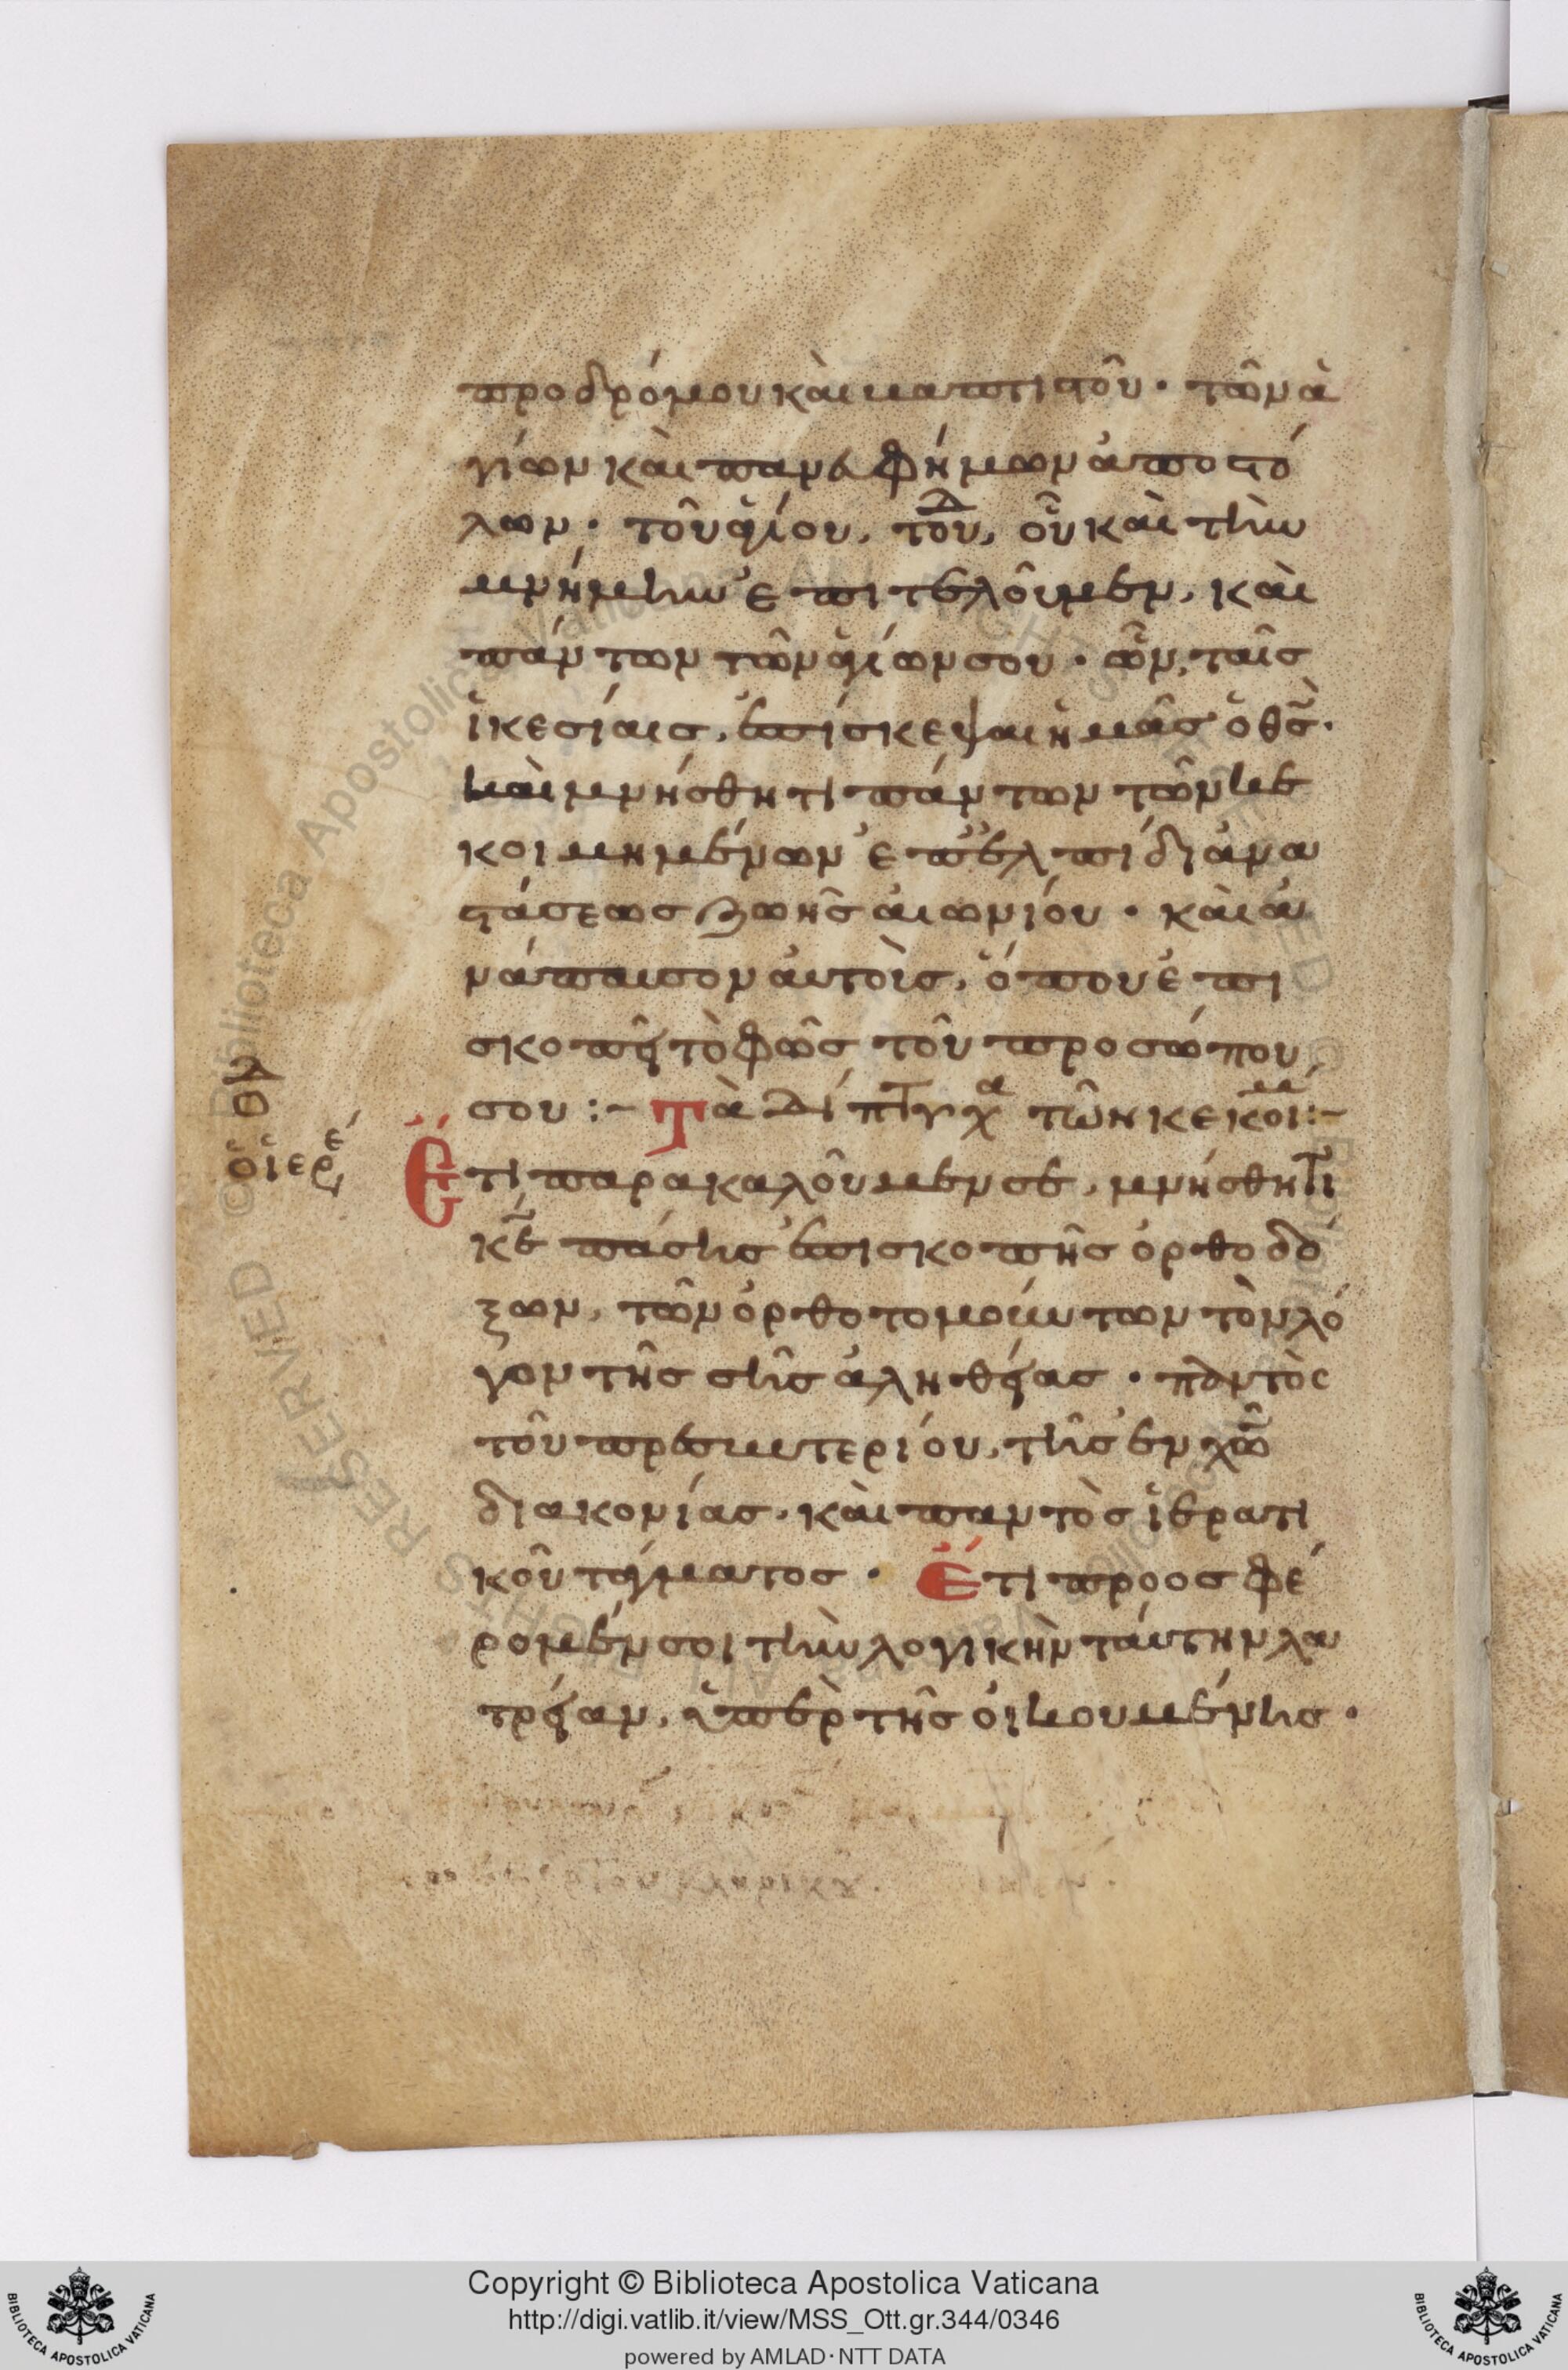 προδρόμου καὶ βαπτιστοῦ · τῶν ἁ
γίων καὶ πανευφήμων ἀποστό
λων · τοῦ ἁγίου, τοῦ δ, οὗ καὶ τὴν
μνήμην ἐπιτελοῦμεν, καὶ
πάντων τῶν ἁγίων σου · ὧν, ταῖς
ἱκεσίαις, ἐπίσκεψαι ἡμᾶς ὁ θς ·
καὶ μνήσθητι πάντων τῶν κε
κοιμημένων ἐπ' ἐλπίδι ἀνα
στάσεως ζωῆς αἰωνίου · καὶ ἀ
νάπαυσον αὐτοὺς, ὅπου ἐπι
σκοπεῖ τὸ φῶς τοῦ προσώπου
σου :- Τὰ Δίπτυχα τῶν κεκοιμ :-
ὁ ἱερε
Ἔτι παρακαλοῦμέν σε, μνήσθητι
κε πάσης ἐπισκοπῆς ὀρθοδό
ξων, τῶν ὀρθοτομούντων τὸν λό
γον τῆς σῆς ἀληθείας · παντὸς
τοῦ πρεσβυτερίου, τῆς ἐν χω
διακονίας · καὶ παντὸς ἱερατι
κοῦ τάγματος · Ἔτι προσφέ
ρομέν σοι τὴν λογικὴν ταύτην λα
τρείαν, ὑπὲρ τῆς οἰκουμένης ·
Copyright © Biblioteca Apostolica Vaticana
http://digi.vatlib.it/view/MSS_Ott.gr.344/0346
powered by AMLAD·NTT DATA
BIBLIOTECA APOSTOLICA VATICANA
BIBLIOTECA APOSTOLICA VATICANA